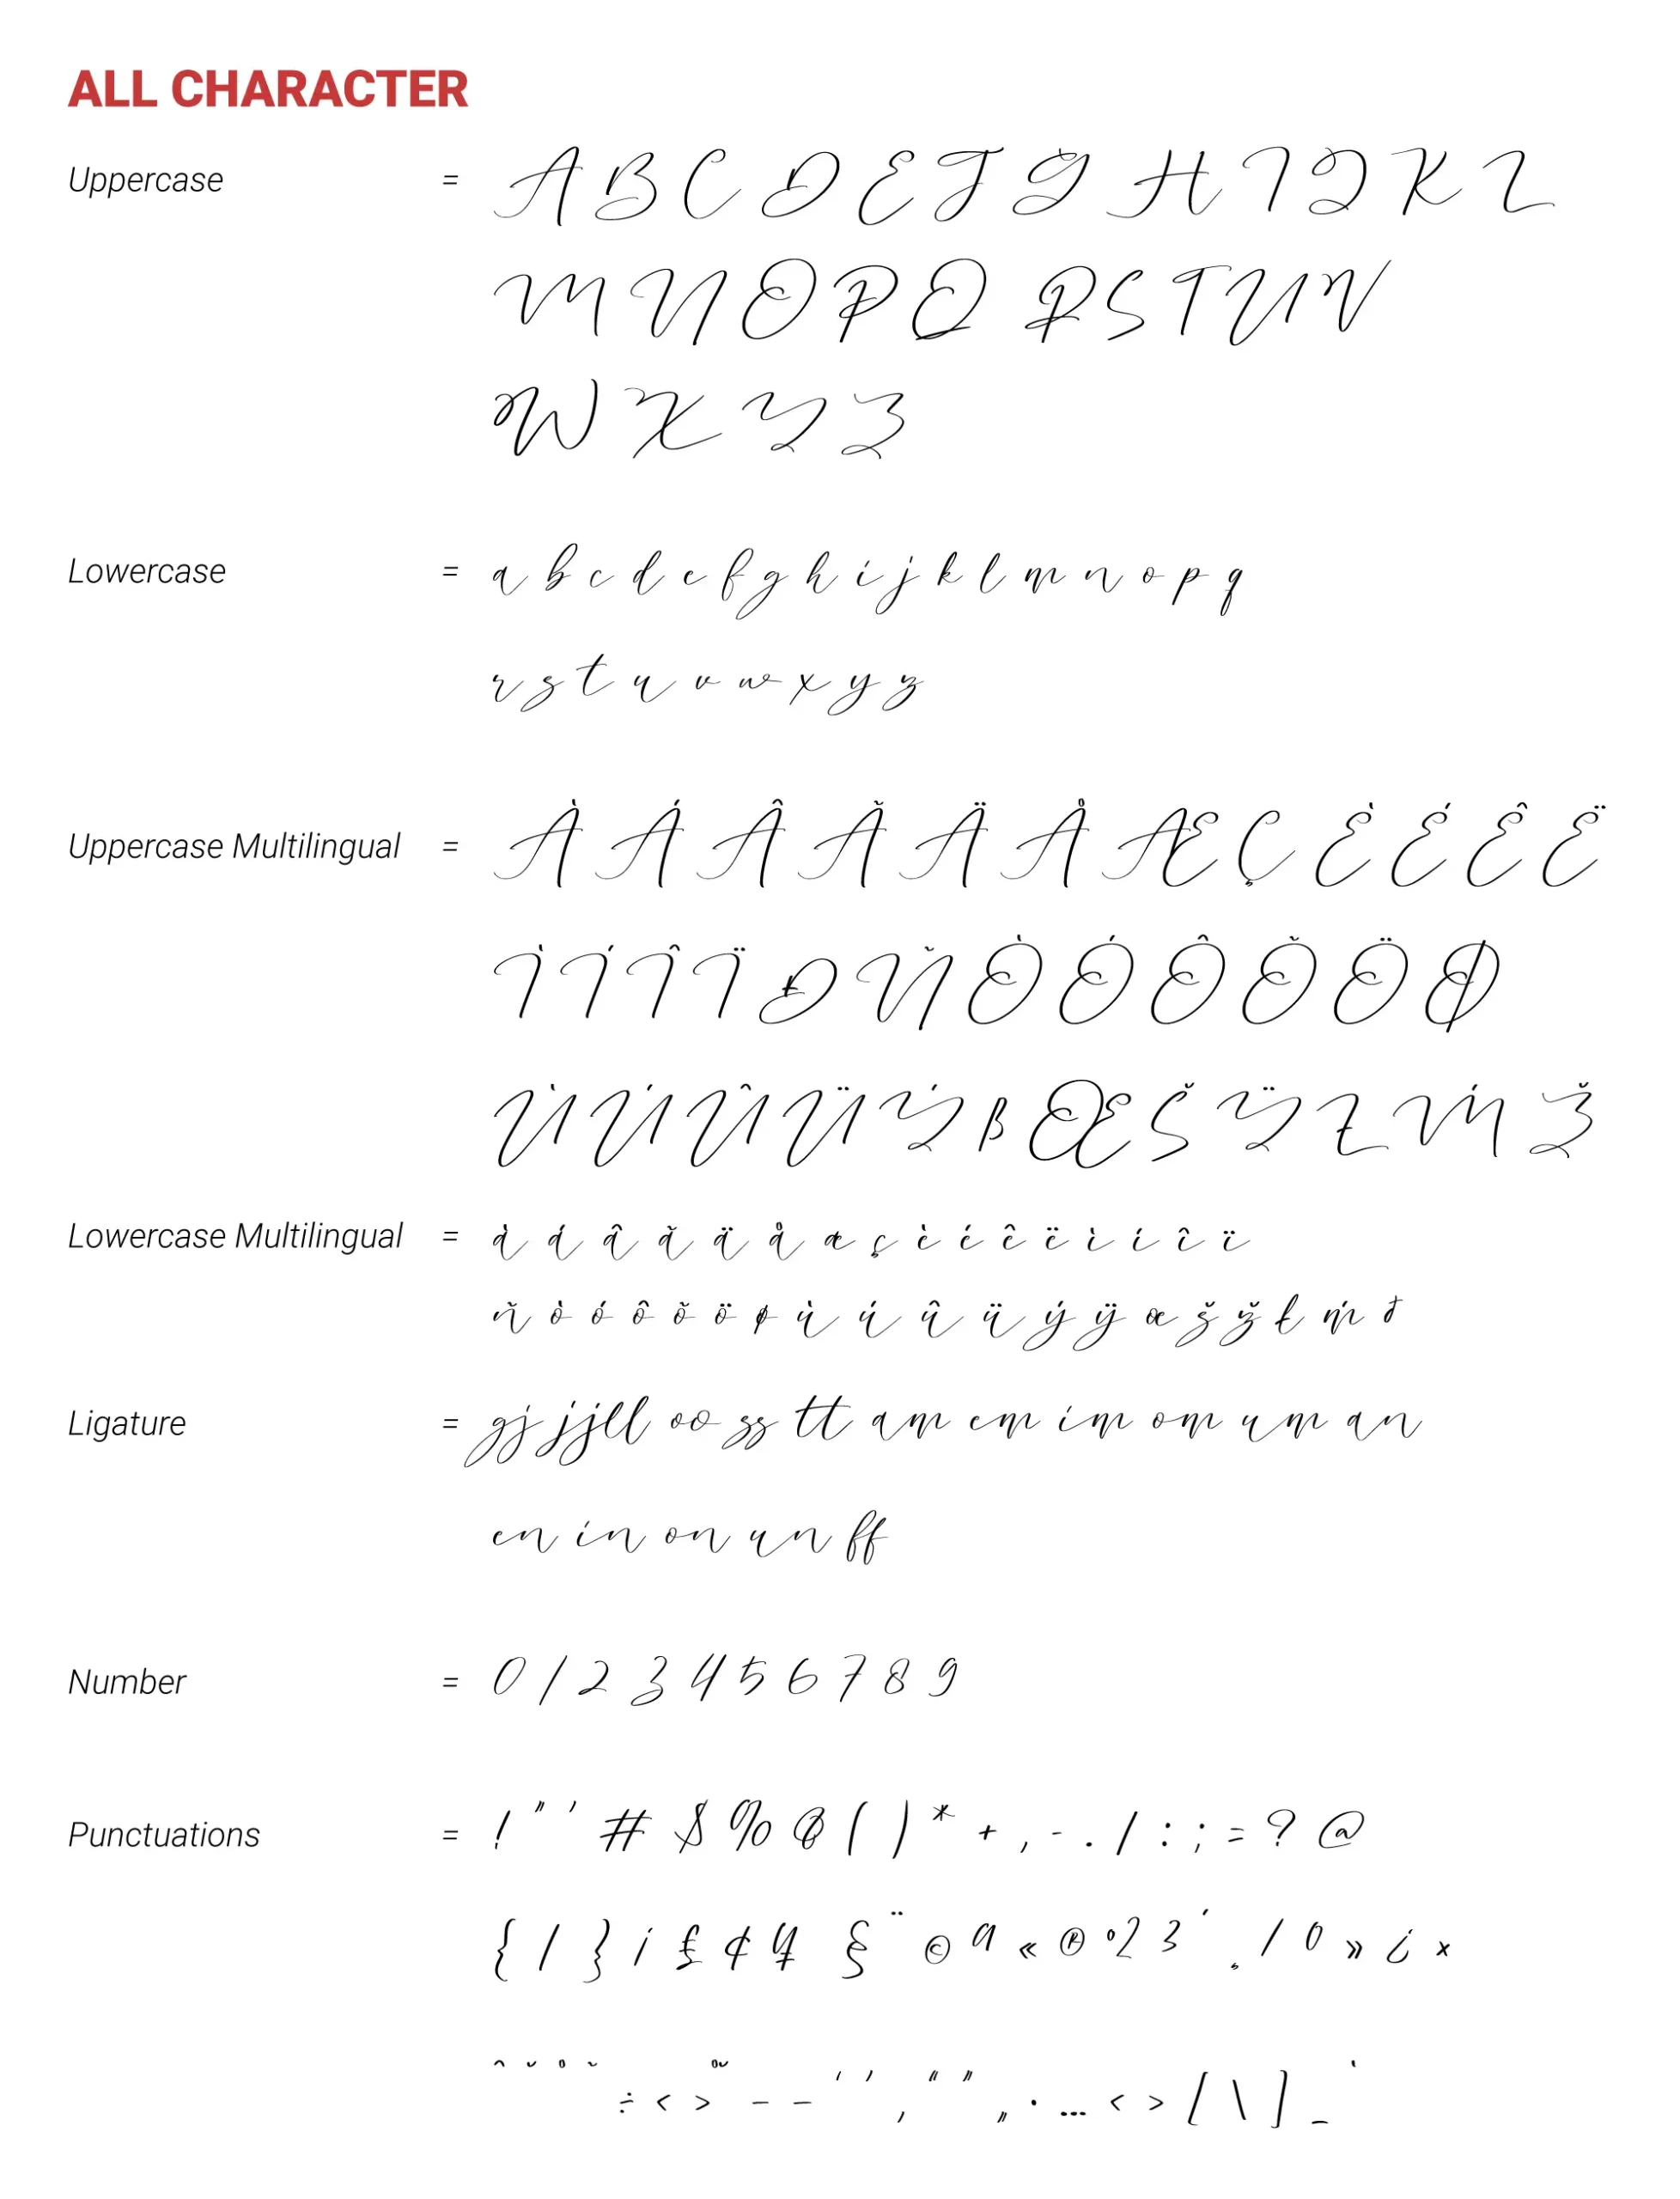 ALL CHARACTER
Uppercase = A B C D E F G H I J K L
M N O P Q R S T U V
W X Y Z
Lowercase = a b c d e f g h i j k l m n o p q
r s t u v w x y z
Uppercase Multilingual = À Á Â Ã Ä Å Æ Ç È É Ê Ë
Ì Í Î Ï Ð Ñ Ò Ó Ô Õ Ö Ø
Ù Ú Û Ü Ý ß Œ Š Ÿ Ł Ḿ Ž
Lowercase Multilingual = à á â ã ä å æ ç è é ê ë ì í î ï
ñ ò ó ô õ ö ø ù ú û ü ý ÿ œ š ž ł ḿ ð
Ligature = gj jj ll oo ss tt am em im om um an
en in on un ff
Number = 0 1 2 3 4 5 6 7 8 9
Punctuations = ! " ' # $ % & ( ) * + , - . / : ; = ? @
{ | } ¡ £ ¢ ¥ § ¨ © ª « ® ° ² ³ ´ ¸ ¹ º » ¿ ×
ˆ ˇ ˚ ˜ ÷ < > – — ‘ ’ ‚ “ ” „ • … ‹ › [ \ ] _ `